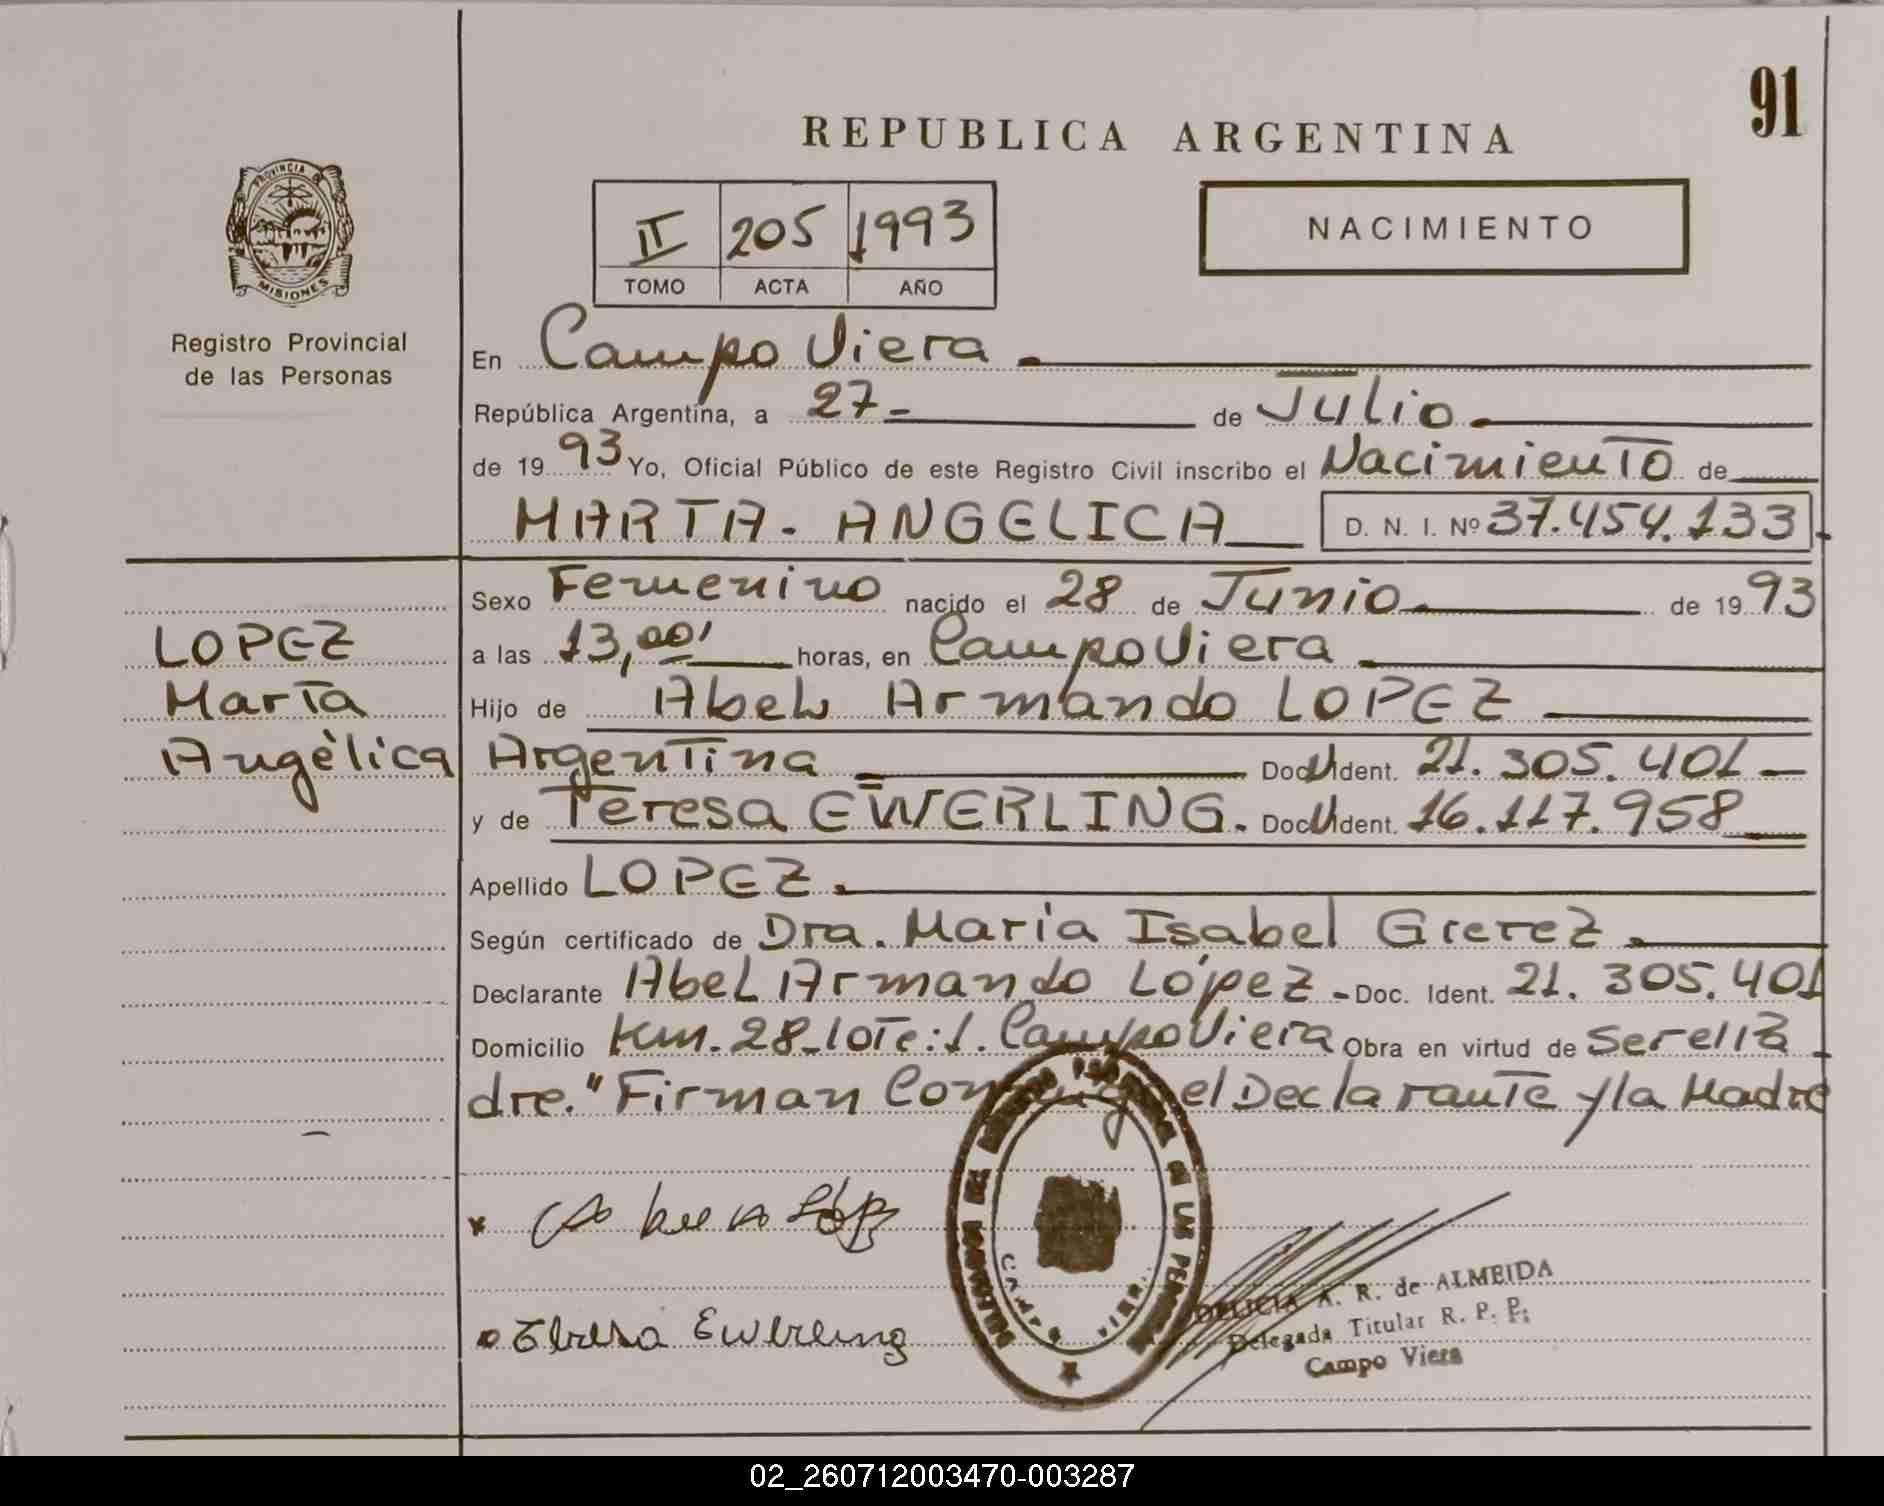 91
REPUBLICA ARGENTINA
PROVINCIA DE
MISIONES
Registro Provincial
de las Personas
II 205 1993
TOMO ACTA AÑO
NACIMIENTO
En Campo Viera.
República Argentina, a 27- de Julio.
de 1993 Yo, Oficial Público de este Registro Civil inscribo el Nacimiento de
MARTA. ANGELICA D. N. I. Nº 37.454.133.
Sexo Femenino nacido el 28 de Junio. de 1993
a las 13,00' horas, en Campo Viera
Hijo de Abel Armando LOPEZ
Argentina Doc. Ident. 21.305.401-
y de Teresa EWERLING. Doc. Ident. 16.117.958
Apellido LOPEZ.
Según certificado de Dra. Maria Isabel Grerez.
Declarante Abel Armando López - Doc. Ident. 21.305.401
Domicilio Km. 28_lote:1. Campo Viera Obra en virtud de ser el 
dre." Firman Conmigo el Declarante y la Madre
LOPEZ
Marta
Angèlica
Teresa Ewerling
DELICIA A. R. de ALMEIDA
Delegada Titular R. P. P.
Campo Viera
02_260712003470-003287